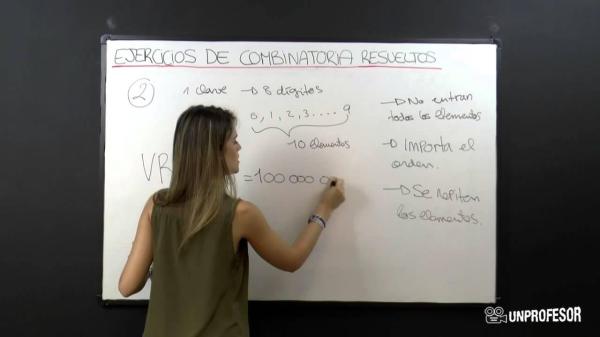 EJERCICIOS DE COMBINATORIA RESUELTOS
2
1 clave → 8 dígitos
0, 1, 2, 3 . . . . 9
10 elementos
VR
= 100 000 0
→ No entran
todos los elementos
→ Importa el
orden.
→ Se repiten
los elementos.
UNPROFESOR